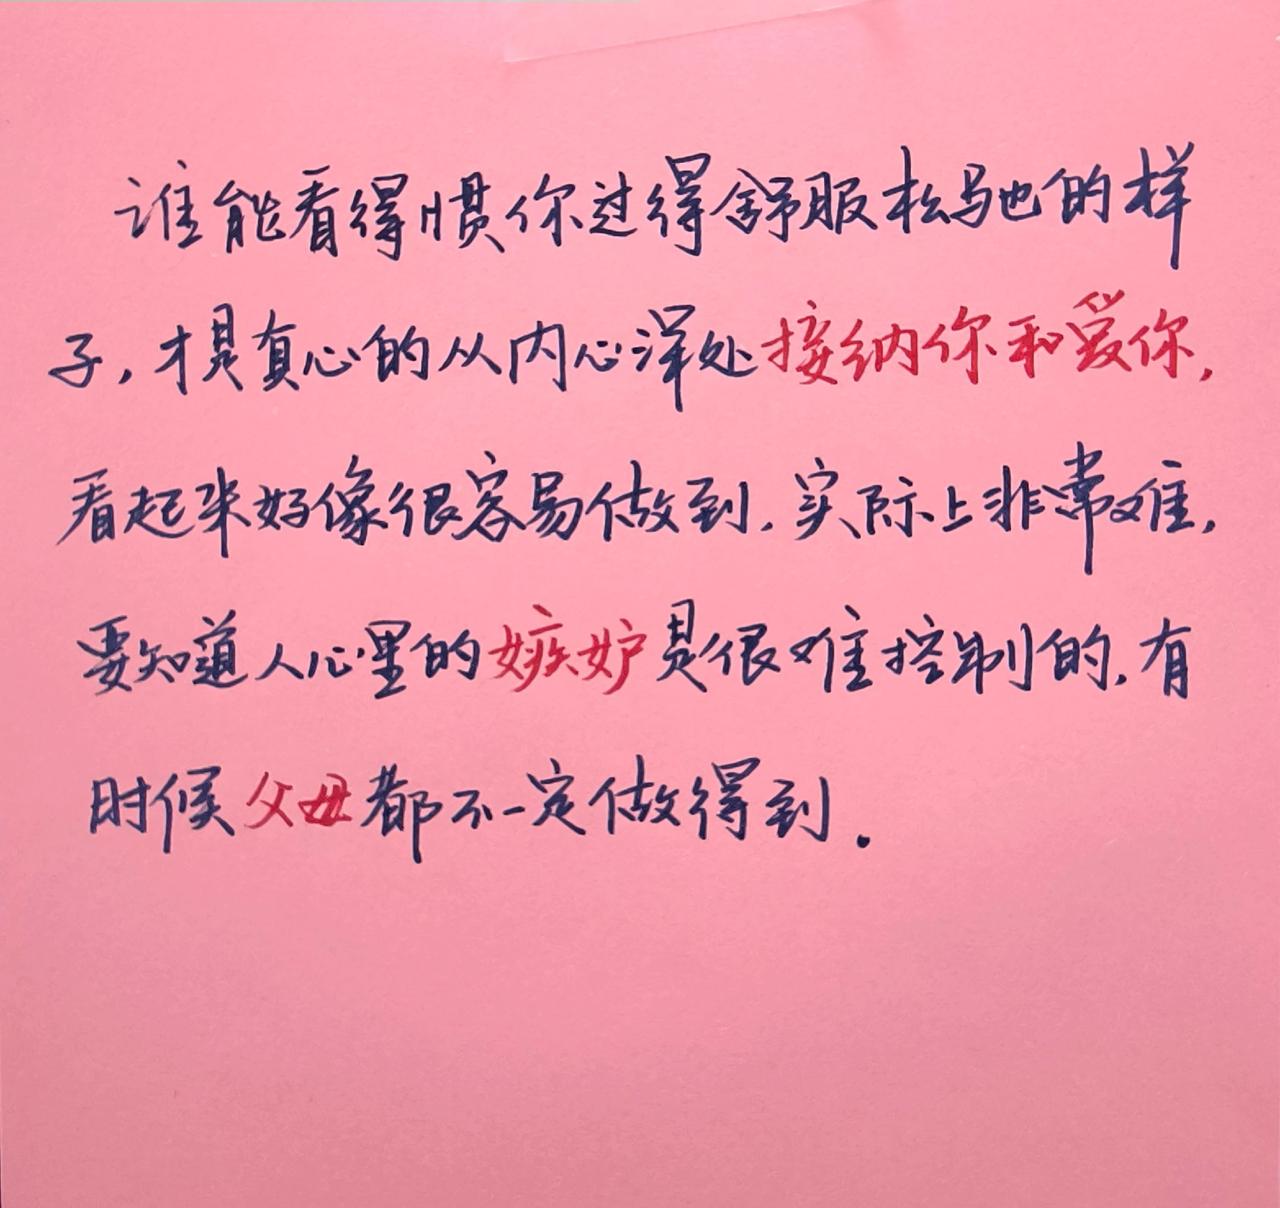 谁能看得惯你过得舒服松弛的样
子,才是真心的从内心深处接纳你和爱你,
看起来好像很容易做到,实际上非常难,
要知道人心里的嫉妒是很难控制的,有
时候父母都不一定做得到.